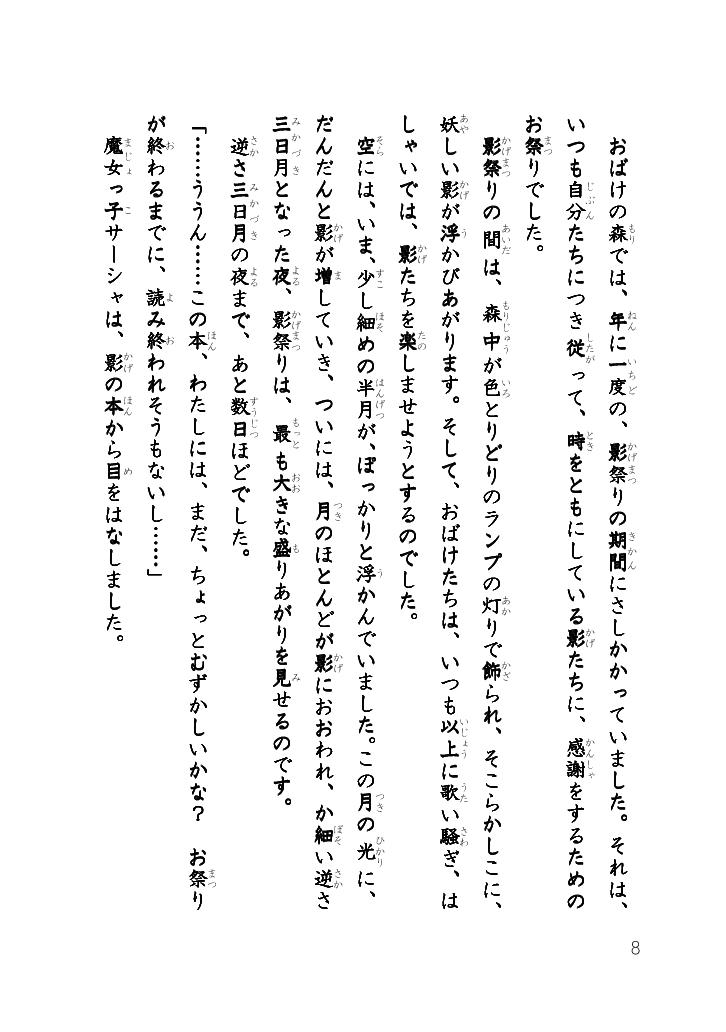 おばけの森では、年に一度の、影祭りの期間にさしかかっていました。それは、
いつも自分たちにつき従って、時をともにしている影たちに、感謝をするための
お祭りでした。
影祭りの間は、森中が色とりどりのランプの灯りで飾られ、そこらかしこに、
妖しい影が浮かびあがります。そして、おばけたちは、いつも以上に歌い騒ぎ、は
しゃいでは、影たちを楽しませようとするのでした。
空には、いま、少し細めの半月が、ぽっかりと浮かんでいました。この月の光に、
だんだんと影が増していき、ついには、月のほとんどが影におおわれ、か細い逆さ
三日月となった夜、影祭りは、最も大きな盛りあがりを見せるのです。
逆さ三日月の夜まで、あと数日ほどでした。
「……ううん……この本、わたしには、まだ、ちょっとむずかしいかな？　お祭り
が終わるまでに、読み終われそうもないし……」
魔女っ子サーシャは、影の本から目をはなしました。
8